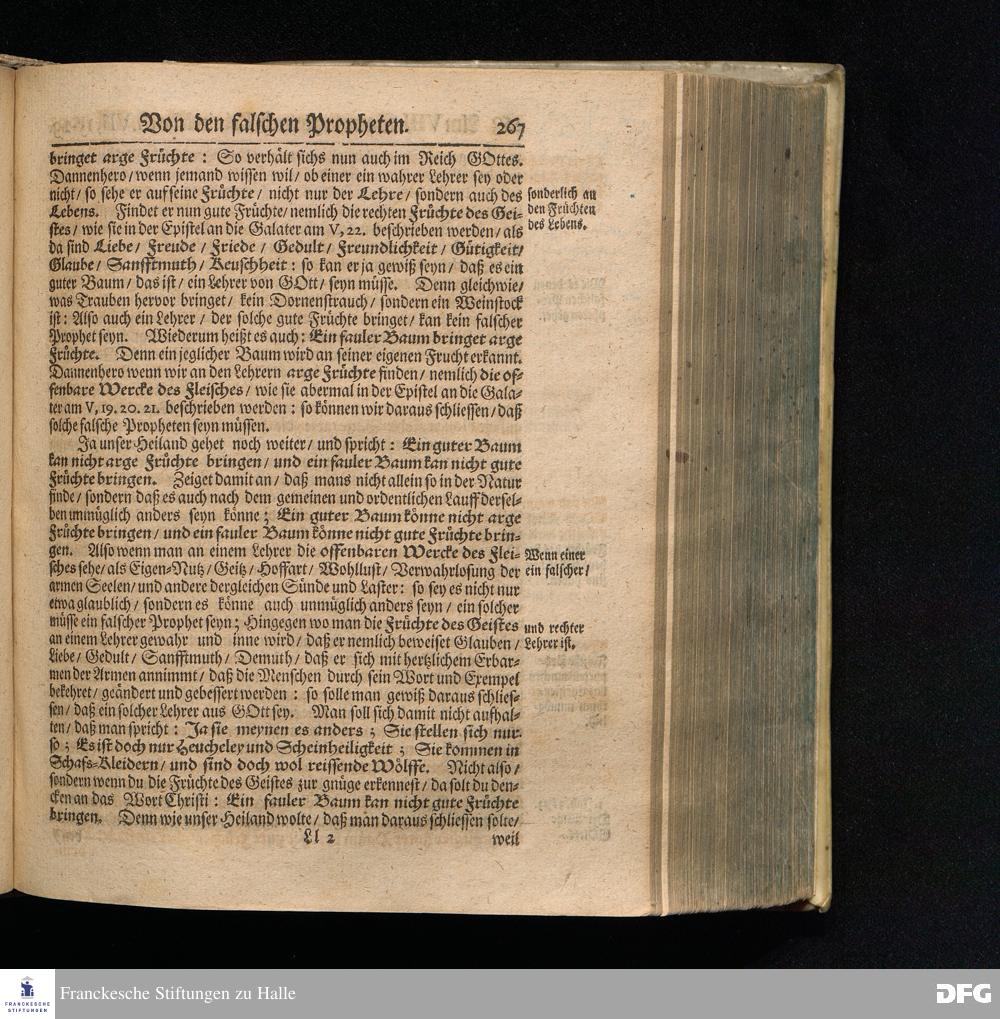 Von den falschen Propheten. 267
bringet arge Früchte : So verhält sichs nun auch im Reich GOttes.
Dannenhero / wenn jemand wissen wil / ob einer ein wahrer Lehrer sey oder
nicht / so sehe er auf seine Früchte / nicht nur der Lehre / sondern auch des
Lebens. Findet er nun gute Früchte / nemlich die rechten Früchte des Gei-
stes / wie sie in der Epistel an die Galater am V, 22. beschrieben werden / als
da sind Liebe / Freude / Friede / Gedult / Freundlichkeit / Gütigkeit /
Glaube / Sanfftmuth / Keuschheit : so kan er ja gewiß seyn / daß es ein
guter Baum / das ist / ein Lehrer von GOtt / seyn müsse. Denn gleichwie /
was Trauben hervor bringet / kein Dornenstrauch / sondern ein Weinstock
ist : Also auch ein Lehrer / der solche gute Früchte bringet / kan kein falscher
Prophet seyn. Wiederum heißt es auch : Ein fauler Baum bringet arge
Früchte. Denn ein jeglicher Baum wird an seiner eigenen Frucht erkannt.
Dannenhero wenn wir an den Lehrern arge Früchte finden / nemlich die of-
fenbare Wercke des Fleisches / wie sie abermal in der Epistel an die Gala-
ter am V, 19. 20. 21. beschrieben werden : so können wir daraus schliessen / daß
solche falsche Propheten seyn müssen.
Ja unser Heiland gehet noch weiter / und spricht : Ein guter Baum
kan nicht arge Früchte bringen / und ein fauler Baum kan nicht gute
Früchte bringen. Zeiget damit an / daß mans nicht allein so in der Natur
finde / sondern daß es auch nach dem gemeinen und ordentlichen Lauff dersel-
ben unmüglich anders seyn könne ; Ein guter Baum könne nicht arge
Früchte bringen / und ein fauler Baum könne nicht gute Früchte brin-
gen. Also wenn man an einem Lehrer die offenbaren Wercke des Flei-
sches sehe / als Eigen-Nutz / Geitz / Hoffart / Wohllust / Verwahrlosung der
armen Seelen / und andere dergleichen Sünde und Laster : so sey es nicht nur
etwa glaublich / sondern es könne auch unmüglich anders seyn / ein solcher
müsse ein falscher Prophet seyn ; Hingegen wo man die Früchte des Geistes
an einem Lehrer gewahr und inne wird / daß er nemlich beweiset Glauben /
Liebe / Gedult / Sanfftmuth / Demuth / daß er sich mit hertzlichem Erbar-
men der Armen annimmt / daß die Menschen durch sein Wort und Exempel
bekehret / geändert und gebessert werden : so solle man gewiß daraus schlies-
sen / daß ein solcher Lehrer aus GOtt sey. Man soll sich damit nicht aufhal-
ten / daß man spricht : Ja sie meynen es anders ; Sie stellen sich nur
so ; Es ist doch nur Heucheley und Scheinheiligkeit ; Sie kommen in
Schafs-Kleidern / und sind doch wol reissende Wölffe. Nicht also /
sondern wenn du die Früchte des Geistes zur gnüge erkennest / da solt du den-
cken an das Wort Christi : Ein fauler Baum kan nicht gute Früchte
bringen. Denn wie unser Heiland wolte / daß man daraus schliessen solte /
Ll 2 weil
sonderlich an
den Früchten
des Lebens.
Wenn einer
ein falscher /
und rechter
Lehrer ist.
FRANCKESCHE
STIFTUNGEN
Franckesche Stiftungen zu Halle
DFG